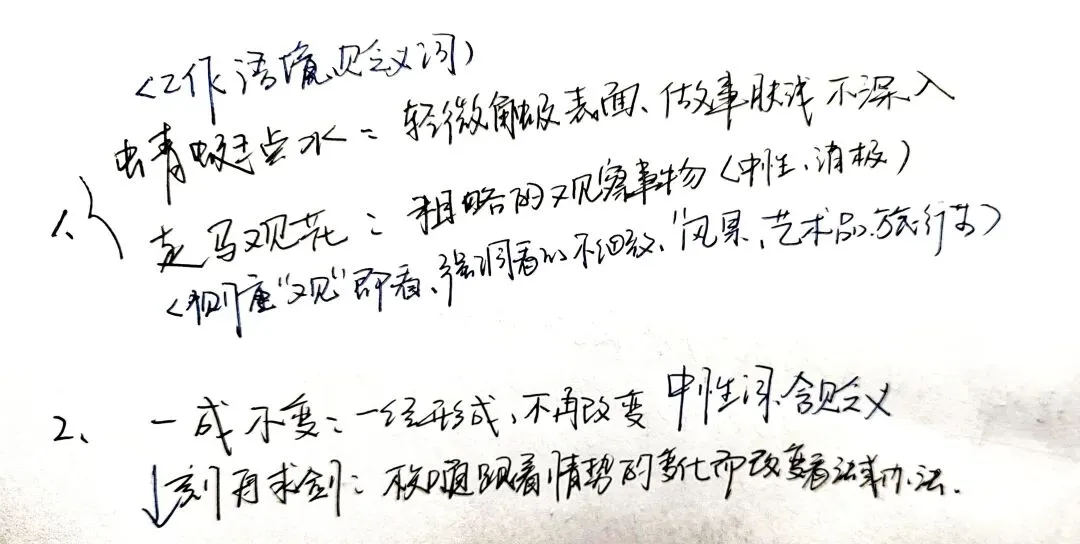 <工作语境,贬义词)
1、{ 蜻蜓点水：轻微触及表面、做事肤浅不深入
走马观花：粗略的观察事物(中性、消极)
<侧重"观"即看、强调看的不细致、"风景、艺术品、旅行等)
2、一成不变：一经形成,不再改变 中性词,含贬义
↓刻舟求剑：不懂跟着情势的变化而改变看法或办法.